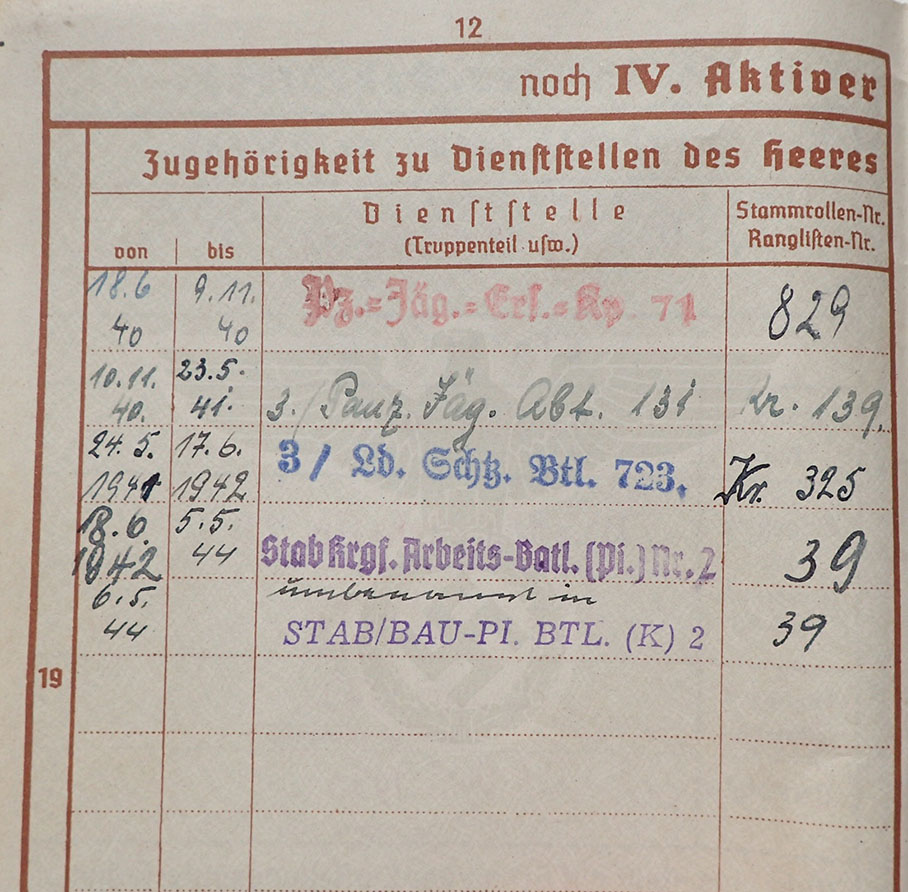 12
noch IV. Aktiver
Zugehörigkeit zu Dienststellen des Heeres
von bis Dienststelle (Truppenteil usw.) Stammrollen-Nr. Ranglisten-Nr.
18.6 9.11. Pz.=Jäg.=Ers.=Kp. 71 829
40 40
10.11. 23.5.
40. 41. 3./Panz. Jäg. Abt. 131 Kr. 139.
24.5. 17.6. 3/ Ld. Schtz. Btl. 723.
1941 1942 Kr. 325
18.6. 5.5.
1942 44 Stab Krgf. Arbeits-Batl. (Pi.) Nr. 2 39
6.5. umbenannt in
44 STAB/BAU-PI. BTL. (K) 2 39
19